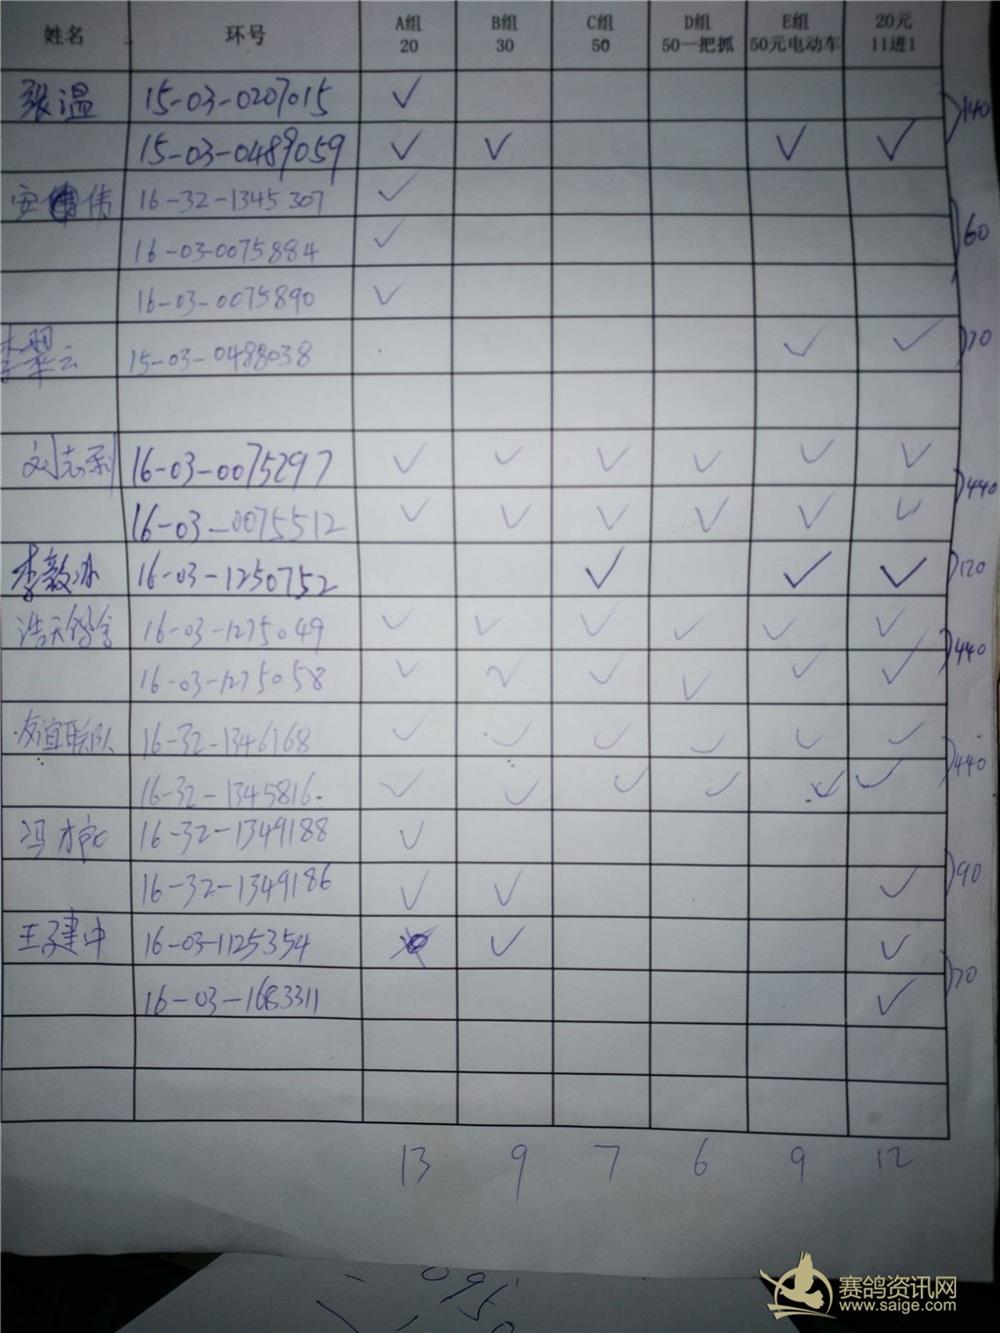 姓名 环号 A组 B组 C组 D组 E组 20元
20 30 50 50一把抓 50元电动车 11进1
张温 15-03-0207015 ✓ 140
15-03-0489059 ✓ ✓ ✓ ✓
安 伟 16-32-1345307 ✓ 60
16-03-0075884 ✓
16-03-0075890 ✓
李翠云 15-03-0488038 ✓ ✓ 70
刘志利 16-03-0075297 ✓ ✓ ✓ ✓ ✓ ✓ 440
16-03-0075512 ✓ ✓ ✓ ✓ ✓ ✓
李毅冰 16-03-1250752 ✓ ✓ ✓ 120
浩天鸽舍 16-03-1275049 ✓ ✓ ✓ ✓ ✓ ✓ 440
16-03-1275058 ✓ ✓ ✓ ✓ ✓ ✓
友谊联队 16-32-1346168 ✓ ✓ ✓ ✓ ✓ ✓ 440
16-32-1345816 ✓ ✓ ✓ ✓ ✓ ✓
冯 16-32-1349188 ✓ 90
16-32-1349186 ✓ ✓ ✓
王建中 16-03-1125354 ✓ ✓ 70
16-03-1683311 ✓
13 9 7 6 9 12
赛鸽资讯网
www.saige.com